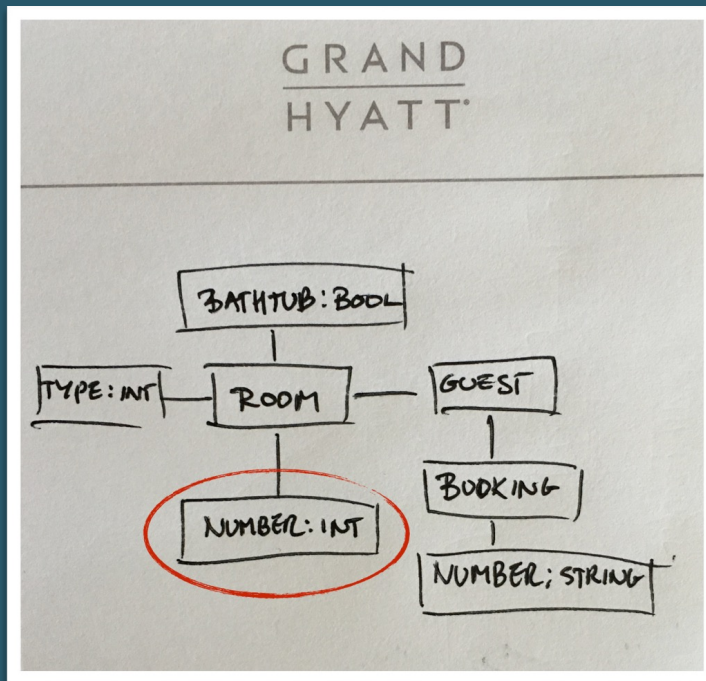 GRAND
HYATT
BATHTUB: BOOL
TYPE: INT
ROOM
GUEST
NUMBER: INT
BOOKING
NUMBER; STRING